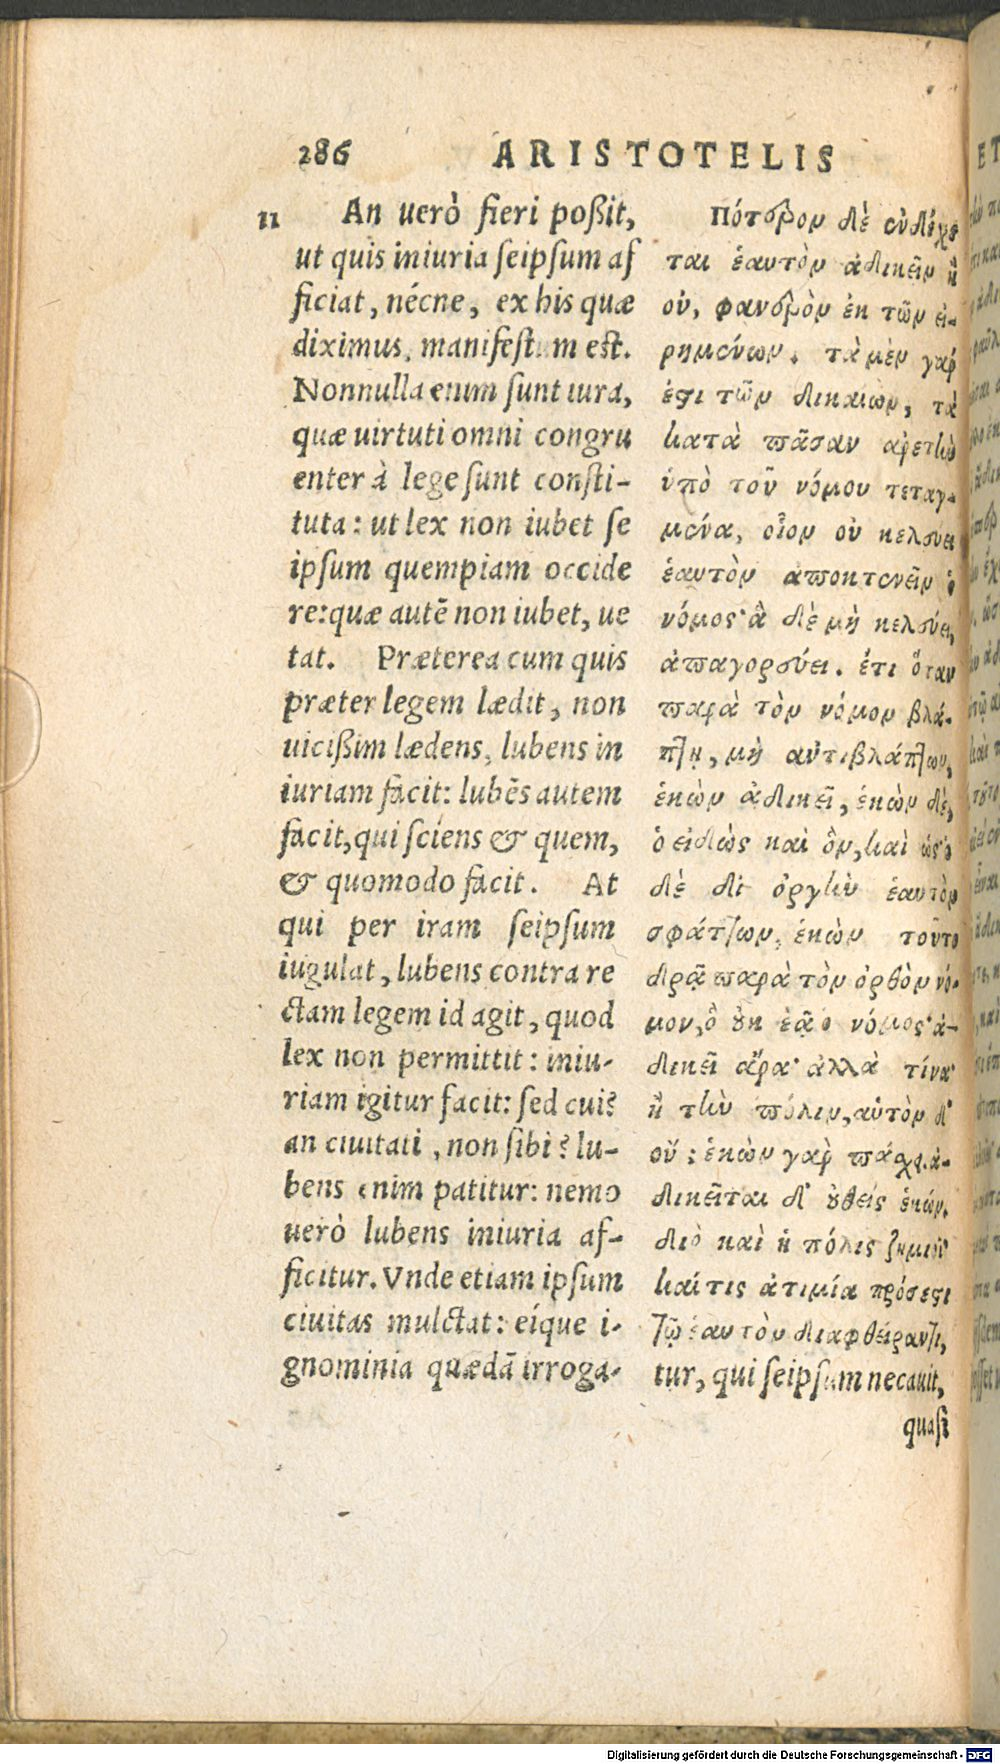 286 ARISTOTELIS
11 An uerò fieri poßit,
ut quis iniuria seipsum af
ficiat, nécne, ex his quæ
diximus, manifestum est.
Nonnulla enim sunt iura,
quæ uirtuti omni congru
enter à lege sunt consti-
tuta: ut lex non iubet se
ipsum quempiam occide
re: quæ autē non iubet, ue
tat. Præterea cum quis
præter legem lædit, non
uicißim lædens, lubens in
iuriam facit: lubēs autem
facit, qui sciens & quem,
& quomodo facit. At
qui per iram seipsum
iugulat, lubens contra re
ctam legem id agit, quod
lex non permittit: iniu-
riam igitur facit: sed cui?
an ciuitati, non sibi? lu-
bens enim patitur: nemo
uerò lubens iniuria af-
ficitur. Vnde etiam ipsum
ciuitas mulctat: eíque i-
gnominia quædā irroga-
Πότερον δὲ ἐνδέχε
ται ἑαυτὸν ἀδικεῖν ἢ
οὐ, φανερὸν ἐκ τῶν εἰ-
ρημένων. τὰ μὲν γάρ
ἐστι τῶν δικαίων, τὰ
κατὰ πᾶσαν ἀρετὴν
ὑπὸ τοῦ νόμου τεταγ-
μένα, οἷον οὐ κελεύει
ἑαυτὸν ἀποκτενεῖν ὁ
νόμος· ἃ δὲ μὴ κελεύει,
ἀπαγορεύει. ἔτι ὅταν
παρὰ τὸν νόμον βλά-
πτῃ, μὴ ἀντιβλάπτων,
ἑκὼν ἀδικεῖ, ἑκὼν δὲ,
ὁ εἰδὼς καὶ ὃν, καὶ ὡς· ὁ
δὲ δι' ὀργὴν ἑαυτὸν
σφάττων, ἑκὼν τοῦτο
δρᾷ παρὰ τὸν ὀρθὸν νό-
μον, ὃ οὐκ ἐᾷ ὁ νόμος· ἀ-
δικεῖ ἄρα· ἀλλὰ τίνα·
ἢ τὴν πόλιν, αὑτὸν δ'
οὔ; ἑκὼν γὰρ πάσχει. ἀ-
δικεῖται δ' οὐθεὶς ἑκών.
διὸ καὶ ἡ πόλις ζημιοῖ·
καί τις ἀτιμία πρόσεστι
τῷ ἑαυτὸν διαφθείραντι,
tur, qui seipsum necauit,
quasi
Digitalisierung gefördert durch die Deutsche Forschungsgemeinschaft - DFG